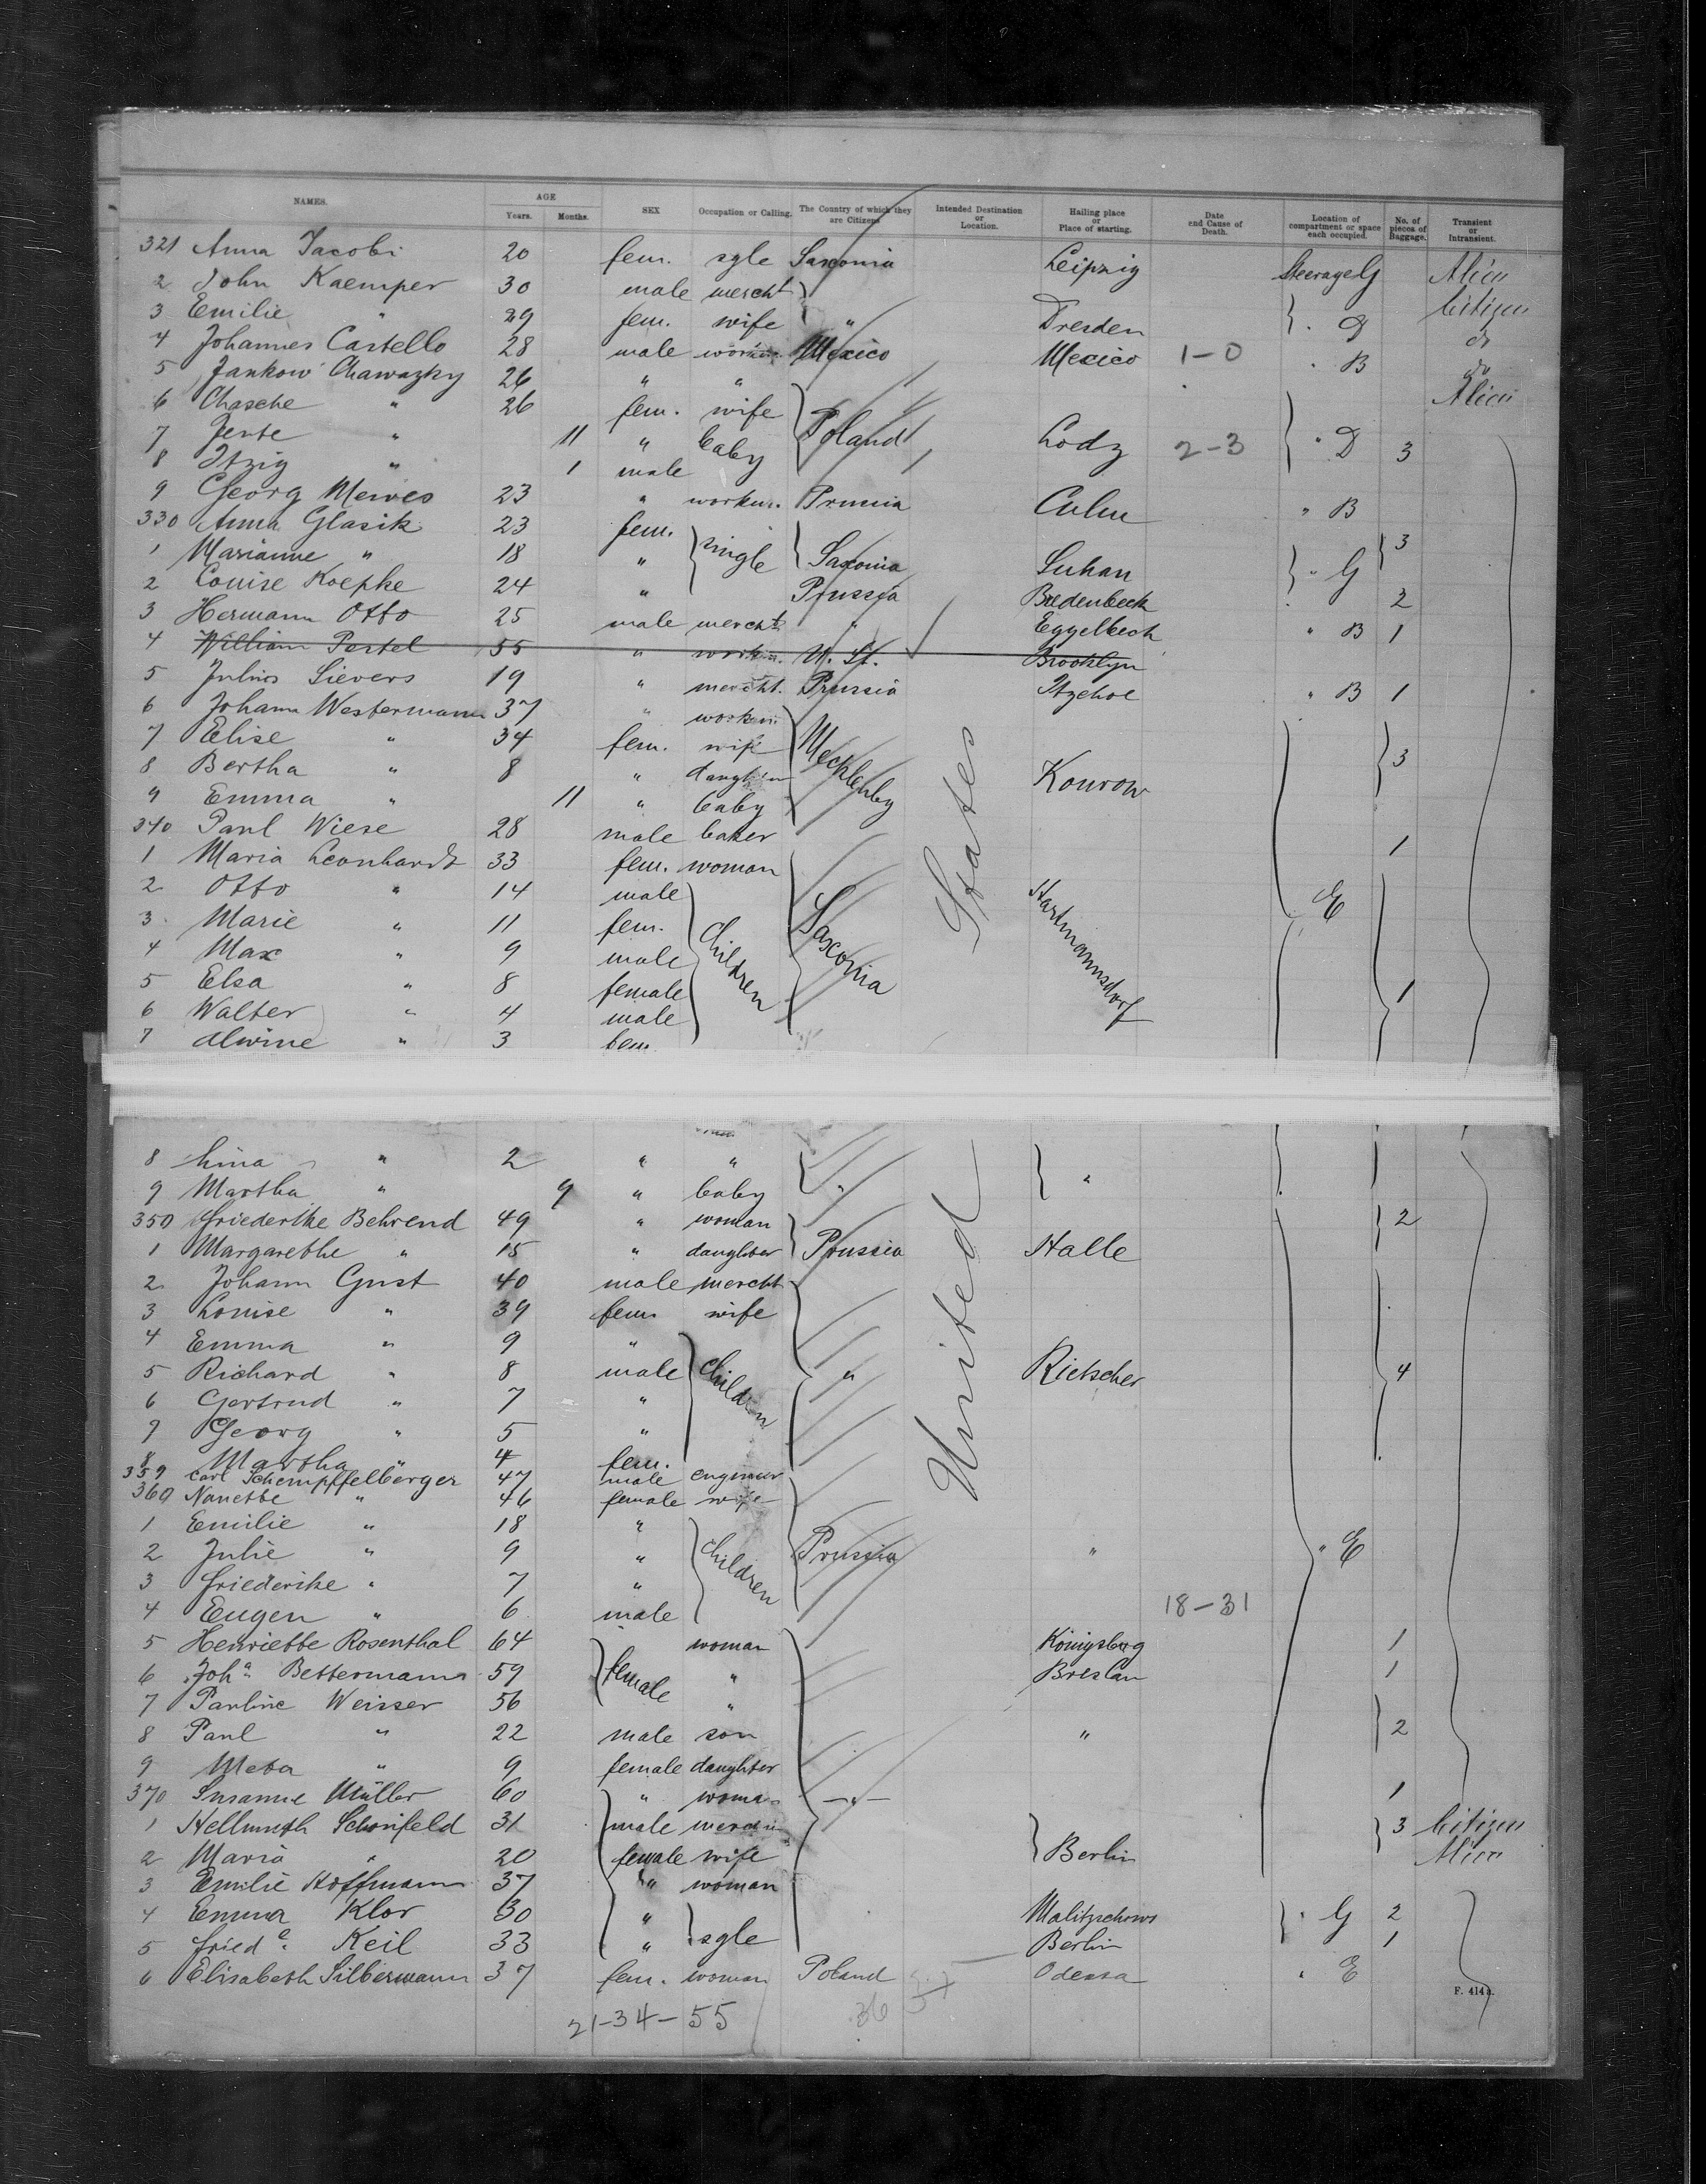 NAMES. AGE Years. Months. SEX Occupation or Calling. The Country of which they are Citizens Intended Destination or Location. Hailing place or Place of starting. Date and Cause of Death. Location of compartment or space each occupied. No. of pieces of Baggage. Transient or Intransient.
321 Anna Jacobi 20 fem. sgle Saxonia Leipzig Steerage G Alien
2 John Kaemper 30 male mercht Citizen
3 Emilie " 29 fem. wife " Dresden " D do
4 Johannes Castello 28 male workm. Mexico Mexico 1-0 " B do
5 Jankow Chawazky 26 " " Alien
6 Chasche " 26 fem. wife
7 Jente " 11 " baby Poland Lodz 2-3 " D 3
8 Itzig " 1 male
9 Georg Mewes 23 " workm. Prussia Culm " B
330 Anna Glasik 23 fem. 3
1 Marianne " 18 " single Saxonia Luhan " G
2 Louise Koepke 24 " Prussia Bredenbeck 2
3 Hermann Otto 25 male mercht " Eggelbech " B 1
4 William Pestel 55 " workm. U. St. Brooklyn
5 Julius Sievers 19 " mercht. Prussia Itzehoe " B 1
6 Johann Westermann 37 " workm.
7 Elise " 34 fem. wife Mecklenbg 3
8 Bertha " 8 " daughter Konrow
9 Emma " 11 " baby
340 Paul Wiese 28 male baker 1
1 Maria Leonhardt 33 fem. woman
2 Otto " 14 male Hartmannsdorf E
3 Marie " 11 fem. children Saxonia
4 Max " 9 male
5 Elsa " 8 female 1
6 Walter " 4 male
7 Alwine " 3 fem.
8 Lina " 2 " "
9 Martha " 9 " baby " "
350 Friederike Behrend 49 " woman 2
1 Margarethe " 15 " daughter Prussia Halle
2 Johann Gust 40 male mercht
3 Louise " 39 fem. wife
4 Emma " 9 "
5 Richard " 8 male children " Rietscher 4
6 Gertrud " 7 "
7 Georg " 5 "
8 Martha " 4 fem.
359 Carl Schempffelberger 47 male engineer
360 Nanette " 46 female wife
1 Emilie " 18 "
2 Julie " 9 " children Prussia " " E
3 Friederike " 7 "
4 Eugen " 6 male 18-31
5 Henriette Rosenthal 64 woman Königsberg 1
6 Joha. Bettermann 59 female " Breslau 1
7 Pauline Weisser 56 "
8 Paul " 22 male son " 2
9 Meta " 9 female daughter
370 Susanne Müller 60 " woman -"- 1
1 Hellmuth Schönfeld 31 male mercht 3 Citizen
2 Maria " 20 female wife Berlin Alien
3 Emilie Hoffmann 37 " woman
4 Emma Klor 30 " sgle Malitzschows " G 2
5 Friede. Keil 33 " Berlin 1
6 Elisabeth Silbermann 37 fem. woman Poland Odessa " E
United States
21-34-55 36
F. 414a.